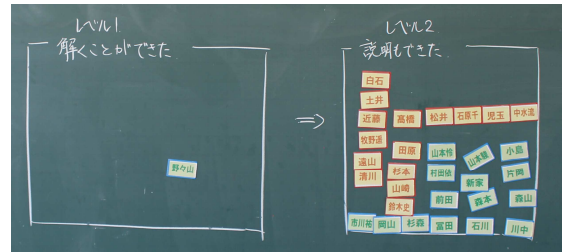 レベル1
解くことができた
野々山
⇒
レベル2
説明もできた
白石
土井
近藤 髙橋 松井 石原千 児玉 中水流
牧野遥
遠山 田原 山本怜 山本駿 小島
清川 杉本 村田依 新家 片岡
山崎
鈴木史 前田 森本 森山
市川裕 岡山 杉森 冨田 石川 川中